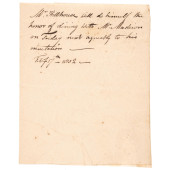 Mr. Hillhouse will do himself the
honor of dining with Mr. Madison
on Friday next agreeably to his
invitation —
Feby 7th 1802 —